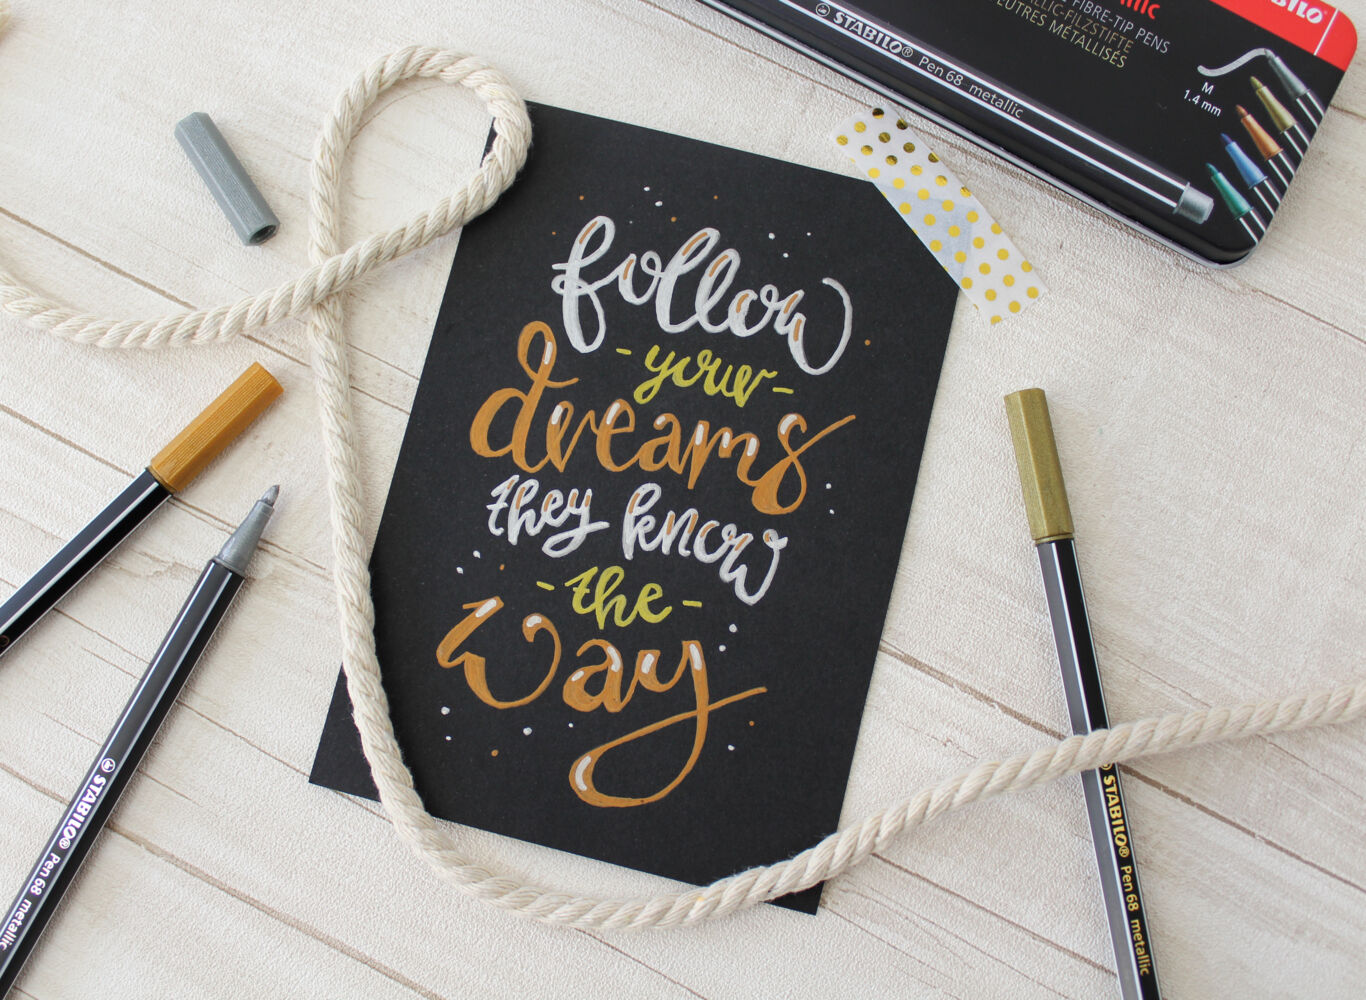 follow
- your -
dreams
they know
- the -
way
STABILO®
FIBRE-TIP PENS
METALLIC-FILZSTIFTE
FEUTRES MÉTALLISÉS
STABILO® Pen 68 metallic
M
1.4 mm
STABILO® Pen 68 metallic
STABILO® Pen 68 metallic